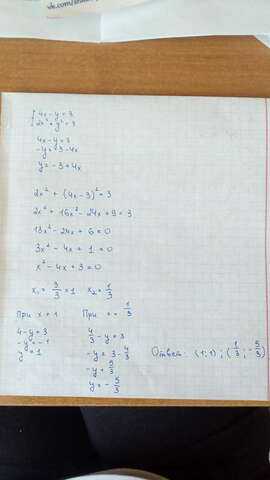 vk.com/
{ 4x - y = 3
2x² + y² = 3
4x - y = 3
-y = 3 - 4x
y = -3 + 4x
2x² + (4x - 3)² = 3
2x² + 16x² - 24x + 9 = 3
18x² - 24x + 6 = 0
3x² - 4x + 1 = 0
x² - 4x + 3 = 0
x₁ = 3/3 = 1 x₂ = 1/3
При x = 1
4 - y = 3
-y = -1
y = 1
При x = 1/3
4/3 - y = 3
-y = 3 - 4/3
-y = 5/3
y = -5/3
Ответ: (1; 1); (1/3; -5/3)